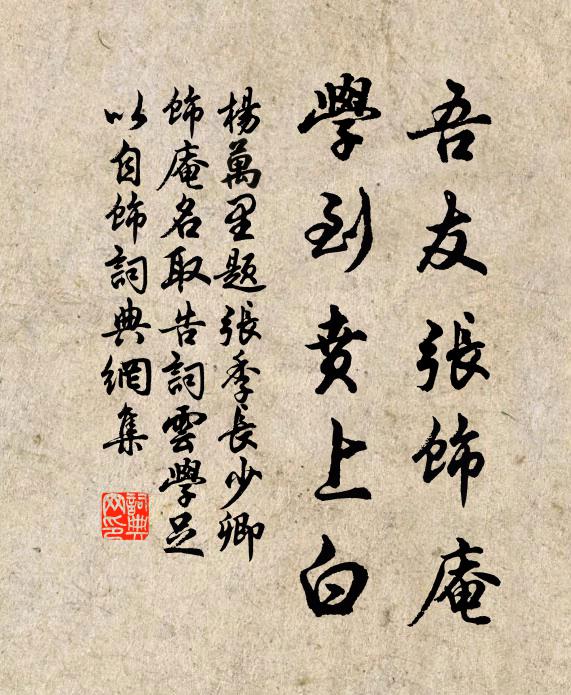 吾友張飾庵
學到賁上白
楊萬里題張季長少卿
飾庵名取告詞雲學足
以自飾詞典網集
詞典网印